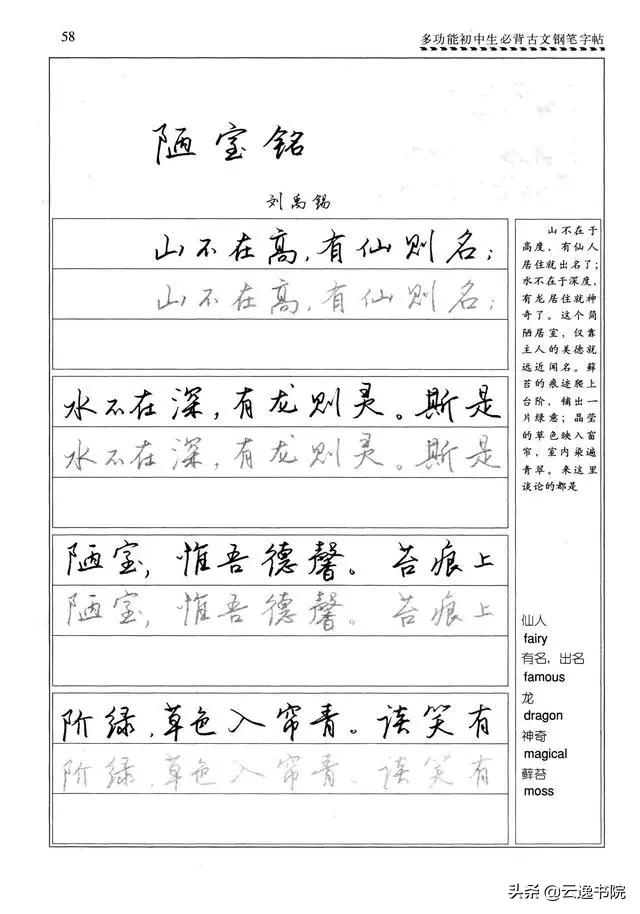 58
多功能初中生必背古文钢笔字帖
陋室铭
刘禹锡
山不在高，有仙则名；
山不在高，有仙则名；
水不在深，有龙则灵。斯是
水不在深，有龙则灵。斯是
陋室，惟吾德馨。苔痕上
陋室，惟吾德馨。苔痕上
阶绿，草色入帘青。谈笑有
阶绿，草色入帘青。谈笑有
山不在于
高度，有仙人
居住就出名了；
水不在于深度，
有龙居住就神
奇了。这个简
陋居室，仅靠
主人的美德就
远近闻名。藓
苔的痕迹爬上
台阶，铺出一
片绿意；晶莹
的草色映入窗
帘，室内染遍
青翠。来这里
谈论的都是
仙人
fairy
有名，出名
famous
龙
dragon
神奇
magical
藓苔
moss
头条@云逸书院